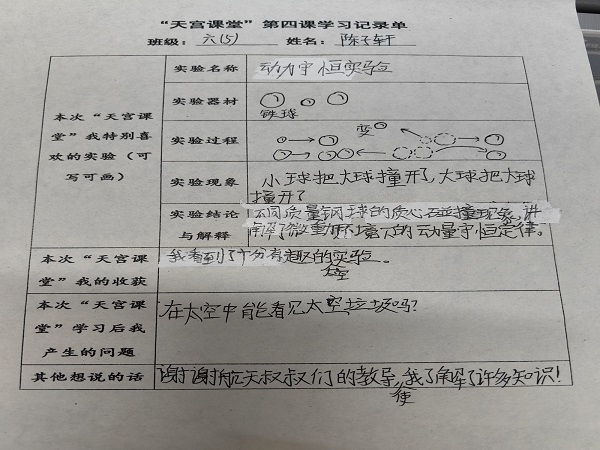 “天宫课堂”第四课学习记录单
班级：六(5) 姓名：陈子轩
本次“天宫课堂”我特别喜欢的实验（可写可画）
实验名称 动力守恒实验
实验器材 铁球
实验过程 变
实验现象 小球把大球撞开了,大球把大球
撞开了
实验结论与解释 不同质量钢球的质心碰撞现象,讲
解了微重力环境下的动量守恒定律。
本次“天宫课堂”我的收获 我看到了十分有趣的太空实验。
本次“天宫课堂”学习后我产生的问题 在太空中能看见太空垃圾吗?
其他想说的话 谢谢航天叔叔们的教导,使我了解了许多知识!